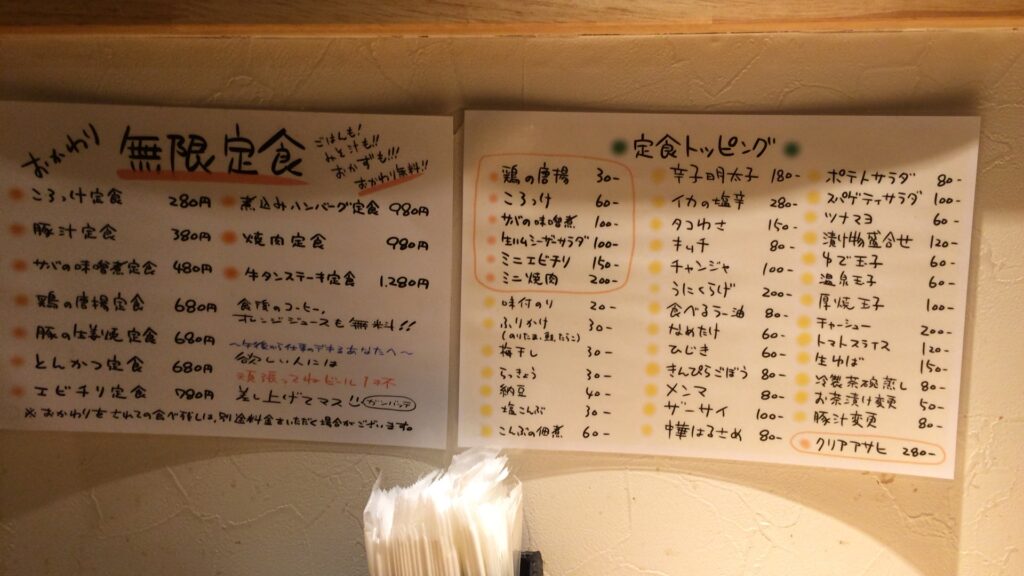 おかわり
無限定食
ごはんも!
みそ汁も!!
おかずも!!!
おかわり無料!!
ころっけ定食 280円
豚汁定食 380円
サバの味噌煮定食 480円
鶏の唐揚定食 680円
豚の生姜焼定食 680円
とんかつ定食 680円
エビチリ定食 780円
煮込みハンバーグ定食 980円
焼肉定食 980円
牛タンステーキ定食 1,280円
食後のコーヒー、
オレンジジュースも無料!!
〜午後から仕事のデキるあなたへ〜
欲しい人には
頑張ってねビール1杯
差し上げてマス!! ガンバッテ
※おかわりをされての食べ残しは、別途料金をいただく場合がございます。
定食トッピング
鶏の唐揚 30-
ころっけ 60-
サバの味噌煮 100-
生ハムシーザーサラダ 100-
ミニエビチリ 150-
ミニ焼肉 200-
味付のり 20-
ふりかけ 30-
(のりたま,鮭,たらこ)
梅干し 30-
らっきょう 30-
納豆 40-
塩こんぶ 30-
こんぶの佃煮 60-
辛子明太子 180-
イカの塩辛 280-
タコわさ 150-
キムチ 80-
チャンジャ 100-
うにくらげ 200-
食べるラー油 80-
なめたけ 60-
ひじき 60-
きんぴらごぼう 80-
メンマ 80-
ザーサイ 100-
中華はるさめ 80-
ポテトサラダ 80-
スパゲティサラダ 100-
ツナマヨ 60-
漬け物盛合せ 120-
ゆで玉子 60-
温泉玉子 60-
厚焼玉子 100-
チャーシュー 200-
トマトスライス 120-
生ゆば 150-
冷製茶碗蒸し 80-
お茶漬け変更 50-
豚汁変更 80-
クリアアサヒ 280-